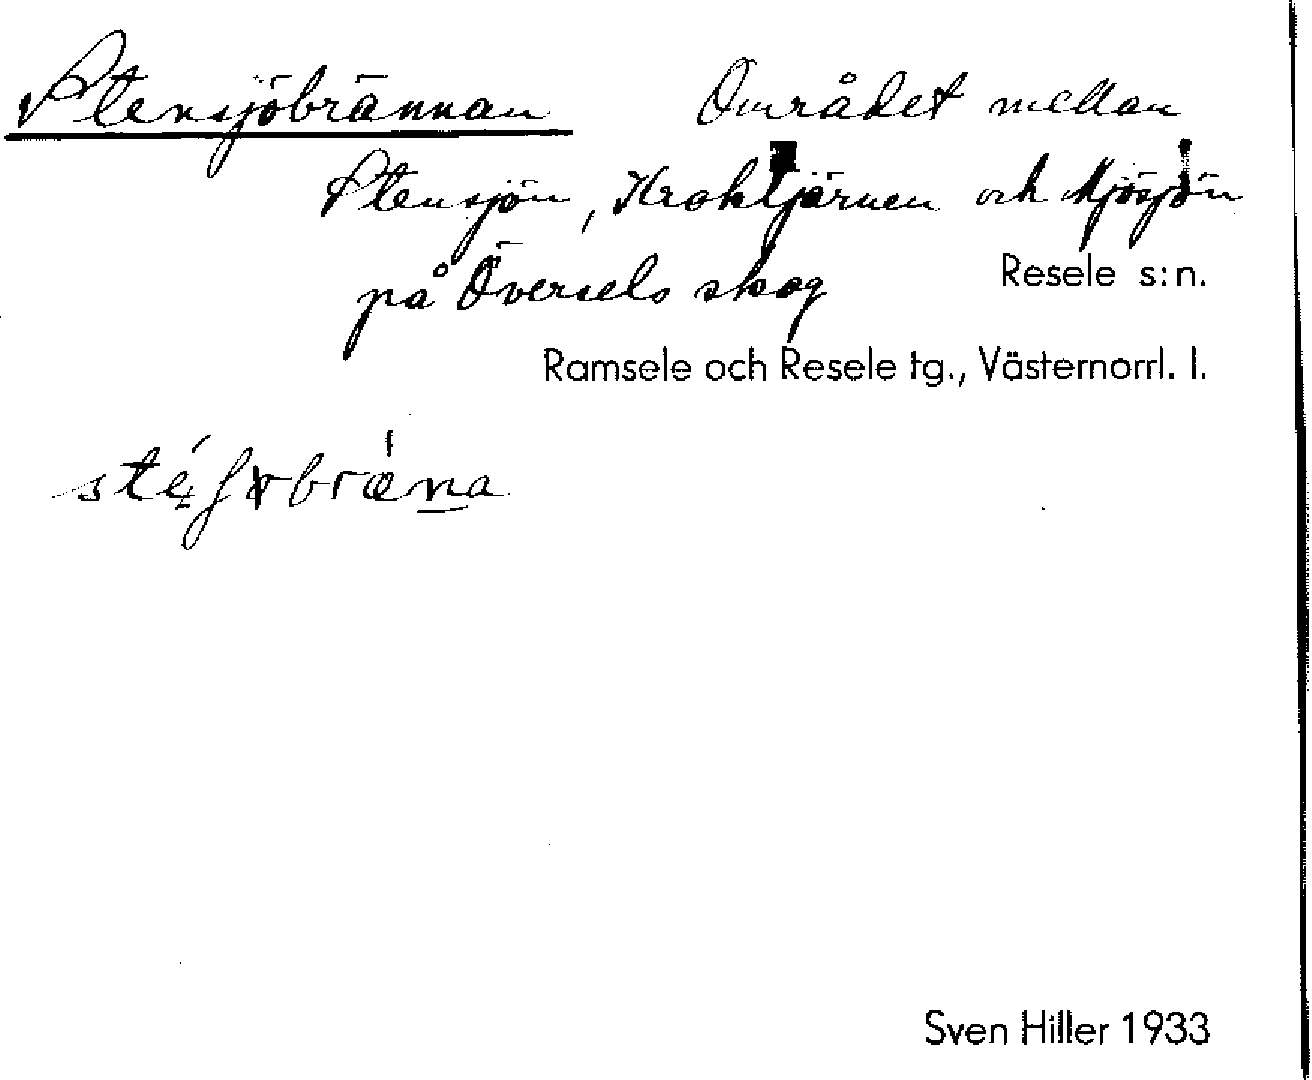 Stensjöbrännan Området mellan
Stensjön, Kroktjärnen och Mjösjön
på Översels skog
Resele s:n.
Ramsele och Resele tg., Västernorrl. l.
Sven Hiller 1933